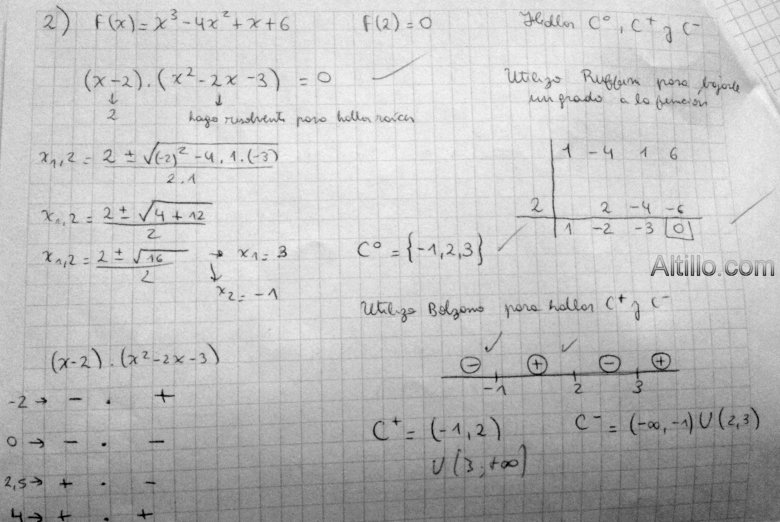 2) F(x) = x³ - 4x² + x + 6   F(2) = 0   Hallar C⁰, C⁺ y C⁻
(x-2) . (x² - 2x - 3) = 0
↓ ↓
2 hago resolvente para hallar raíces
Utilizo Ruffini para bajarle
un grado a la función
x₁,₂ = 2 ± √(-2)² - 4 . 1 . (-3)
2 . 1
x₁,₂ = 2 ± √4 + 12
2
x₁,₂ = 2 ± √16 → x₁ = 3
2
↓
x₂ = -1
1 -4 1 6
2 2 -4 -6
1 -2 -3 0
C⁰ = {-1, 2, 3}
Altillo.com
Utilizo Bolzano para hallar C⁺ y C⁻
- + - +
-1 2 3
C⁺ = (-1, 2)
U (3; +∞)
C⁻ = (-∞, -1) U (2, 3)
(x-2) . (x² - 2x - 3)
-2 → - . +
0 → - . -
2,5 → + . -
4 → + . +